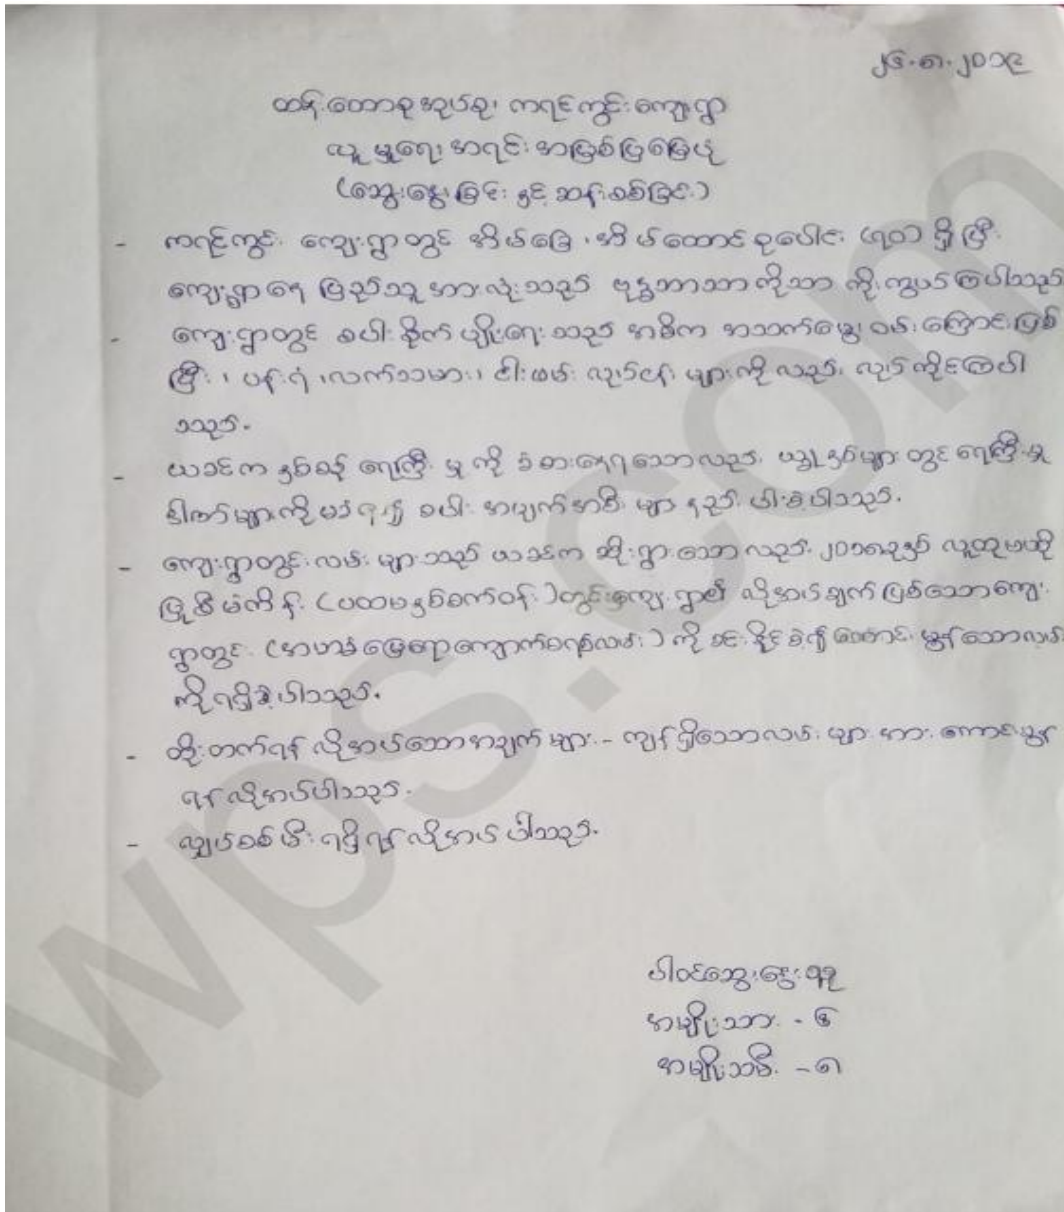 ၂၆.၈.၂၀၁၉
ထန်းတောစုအုပ်စု၊ ကရင်ကွင်းကျေးရွာ
လူမှုရေး အရင်းအမြစ်ပြမြေပုံ
(ဆွေးနွေးခြင်း နှင့် ဆန်းစစ်ခြင်း)
- ကရင်ကွင်း ကျေးရွာတွင် အိမ်ခြေ ၊ အိမ်ထောင်စုပေါင်း ရှိပြီး
ကျေးရွာနေ ပြည်သူအားလုံးသည် ဗုဒ္ဓဘာသာကိုသာ ကိုးကွယ်ကြပါသည်
- ကျေးရွာတွင် စပါးစိုက်ပျိုးရေးသည် အဓိက အသက်မွေးဝမ်းကြောင်းဖြစ်
ပြီး ၊ ပန်းရံ ၊ လက်သမား ၊ ငါးဖမ်း လုပ်ငန်းများကိုလည်း လုပ်ကိုင်ကြပါ
သည်။
- ယခင်က နှစ်စဉ် ရေကြီးမှုကို ခံစားနေရသော်လည်း ယခုနှစ်များတွင် ရေကြီးမှု
ဒါဏ်များကိုမခံရ၍ စပါးအပျက်အစီးများ နည်းပါးခဲ့ပါသည်။
- ကျေးရွာတွင်း လမ်းများသည် ယခင်က ဆိုးရွားသော်လည်း ၂၀၁၈ခုနှစ် လူထုဗဟို
ပြုစီမံကိန်း (ပထမနှစ်စက်ဝန်း)တွင် ကျေးရွာ၏ လိုအပ်ချက်ဖြစ်သောကျေး
ရွာတွင်း (အုတ်ခဲမြေရောကျောက်စရစ်လမ်း)ကို ခင်းနိုင်ခဲ့၍ ကောင်းမွန်သောလမ်း
ကိုရရှိခဲ့ပါသည်။
- တိုးတက်ရန် လိုအပ်သောအချက်များ - ကျန်ရှိသောလမ်းများအား ကောင်းမွန်
ရန်လိုအပ်ပါသည်။
- လျှပ်စစ်မီး ရရှိရန်လိုအပ်ပါသည်။
ပါဝင်ဆွေးနွေးသူ
အမျိုးသား - ၆
အမျိုးသမီး - ၈